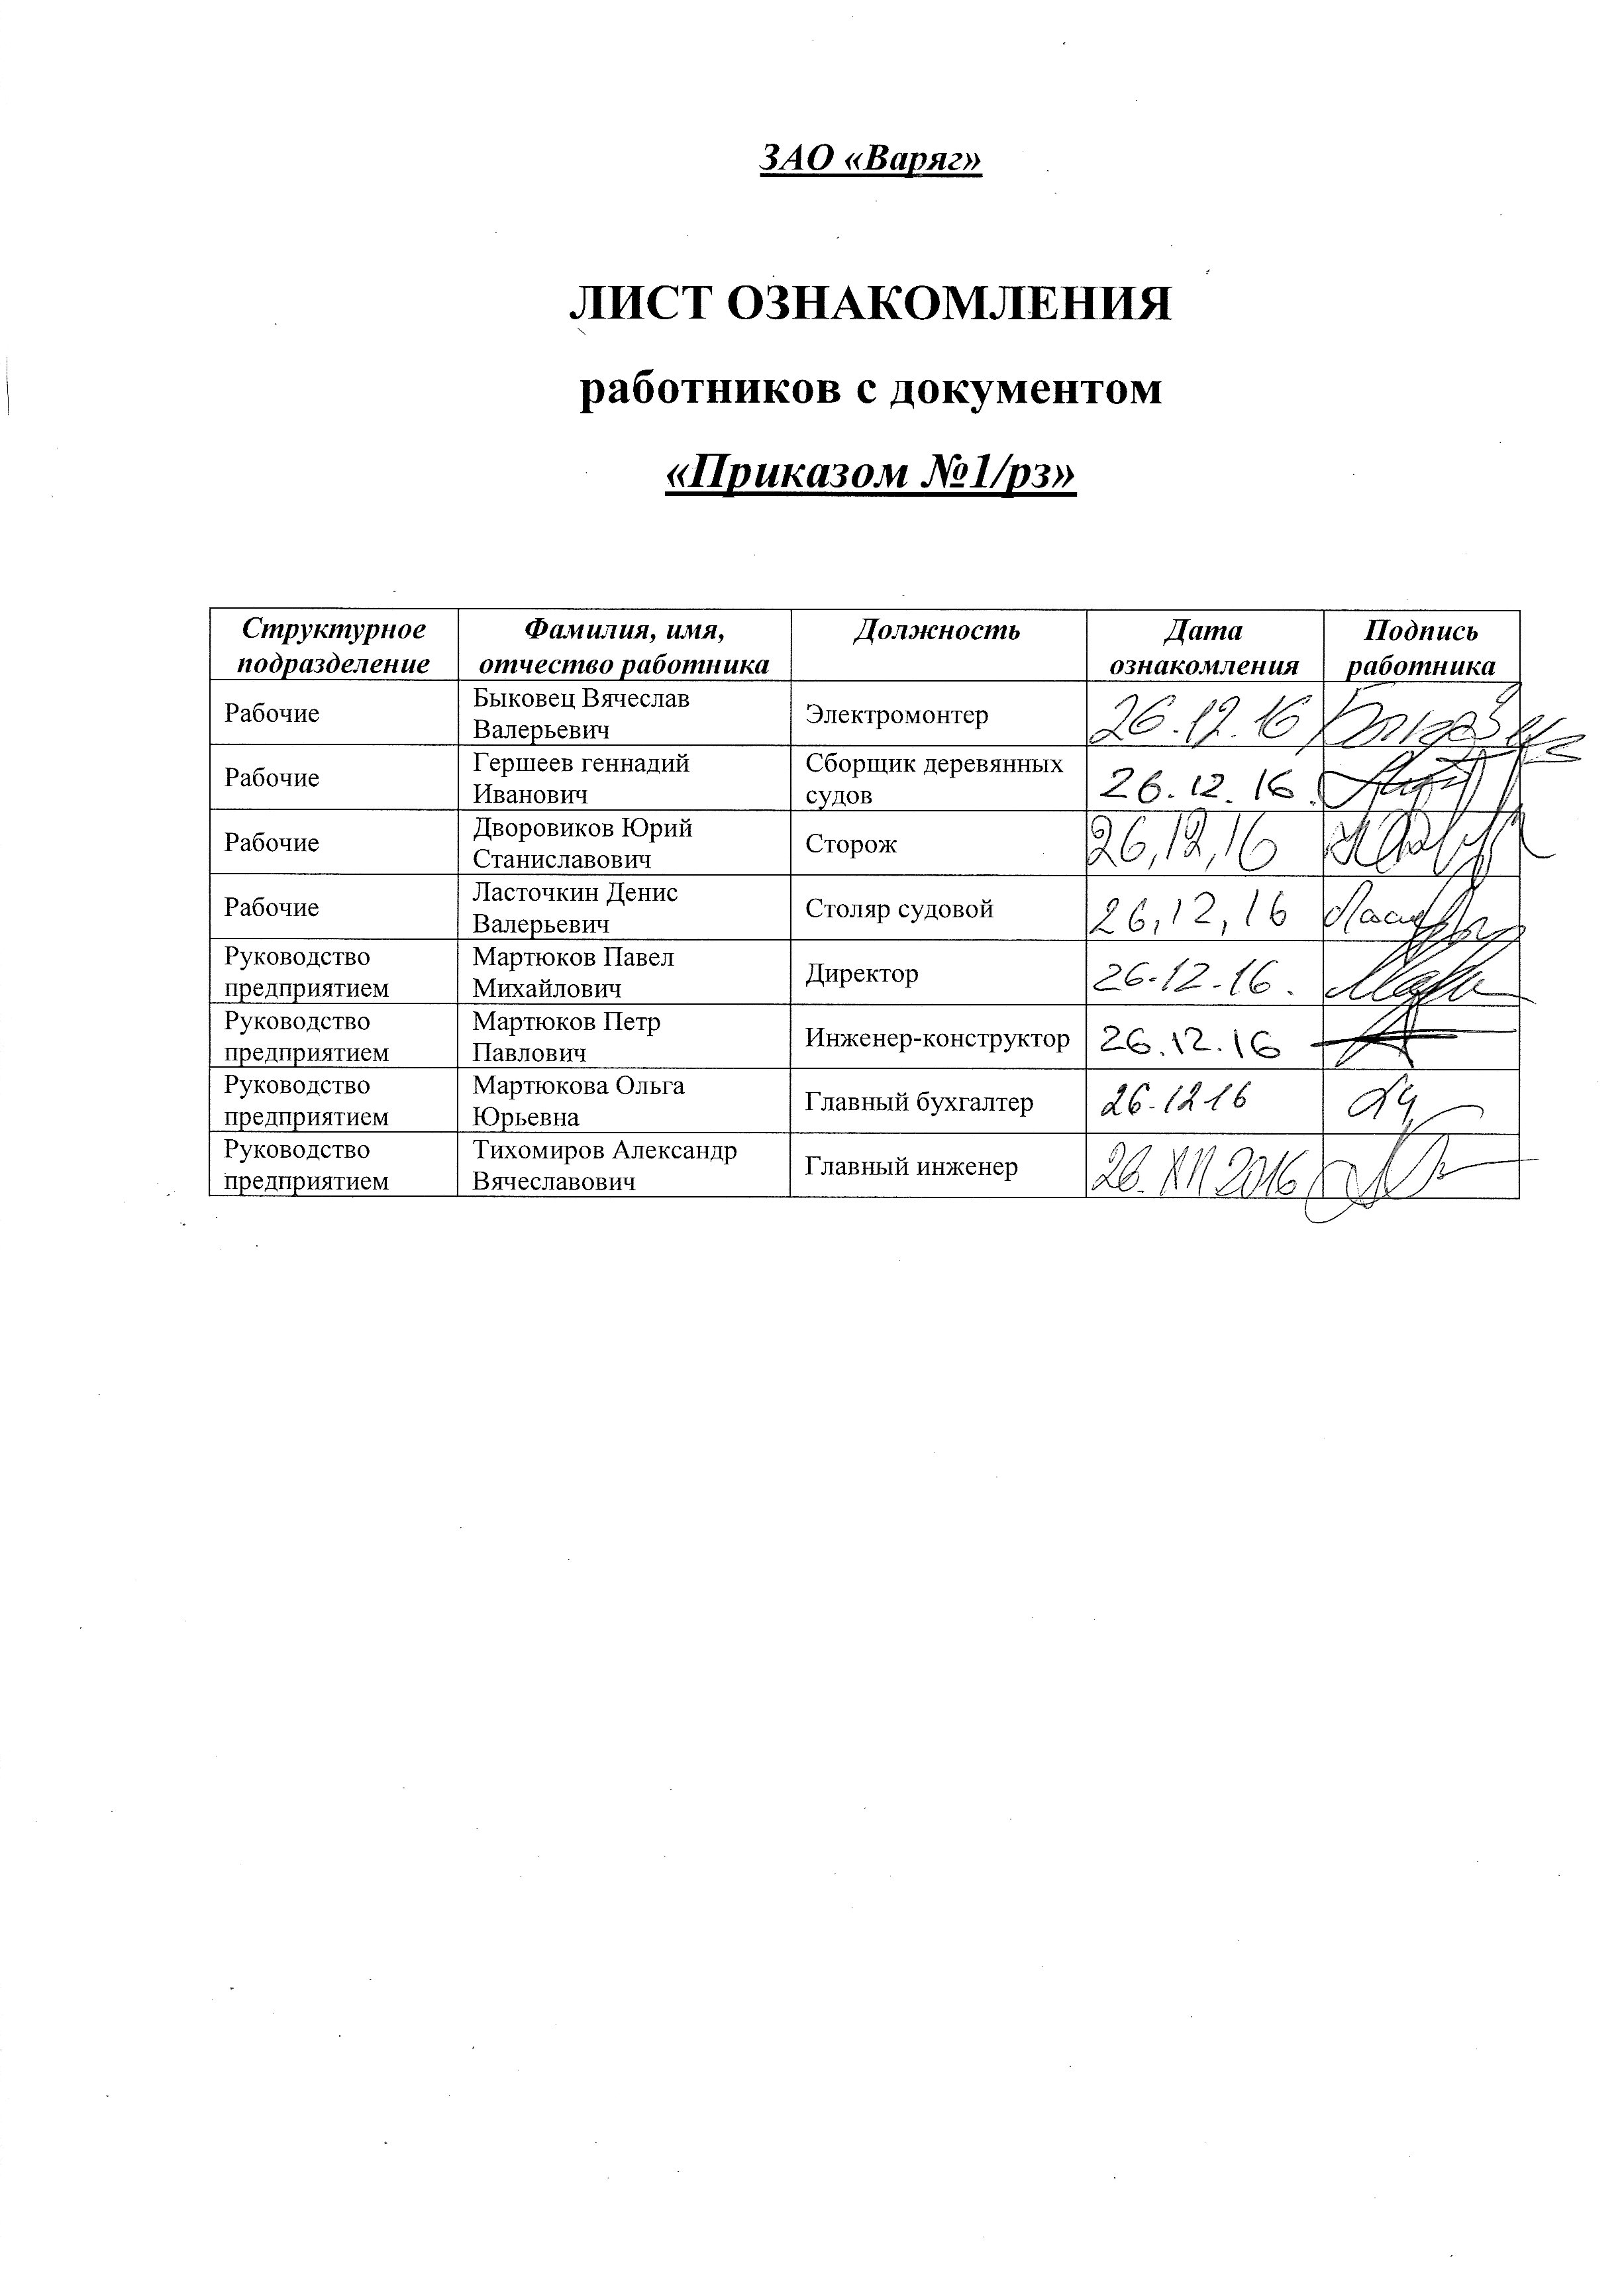 ЗАО «Варяг»
ЛИСТ ОЗНАКОМЛЕНИЯ
работников с документом
«Приказом №1/рз»
Структурное подразделение Фамилия, имя, отчество работника Должность Дата ознакомления Подпись работника
Рабочие Быковец Вячеслав Валерьевич Электромонтер 26.12.16
Рабочие Гершеев геннадий Иванович Сборщик деревянных судов 26.12.16.
Рабочие Дворовиков Юрий Станиславович Сторож 26,12,16
Рабочие Ласточкин Денис Валерьевич Столяр судовой 26,12,16
Руководство предприятием Мартюков Павел Михайлович Директор 26.12.16.
Руководство предприятием Мартюков Петр Павлович Инженер-конструктор 26.12.16
Руководство предприятием Мартюкова Ольга Юрьевна Главный бухгалтер 26.12 16
Руководство предприятием Тихомиров Александр Вячеславович Главный инженер 26.XII 2016